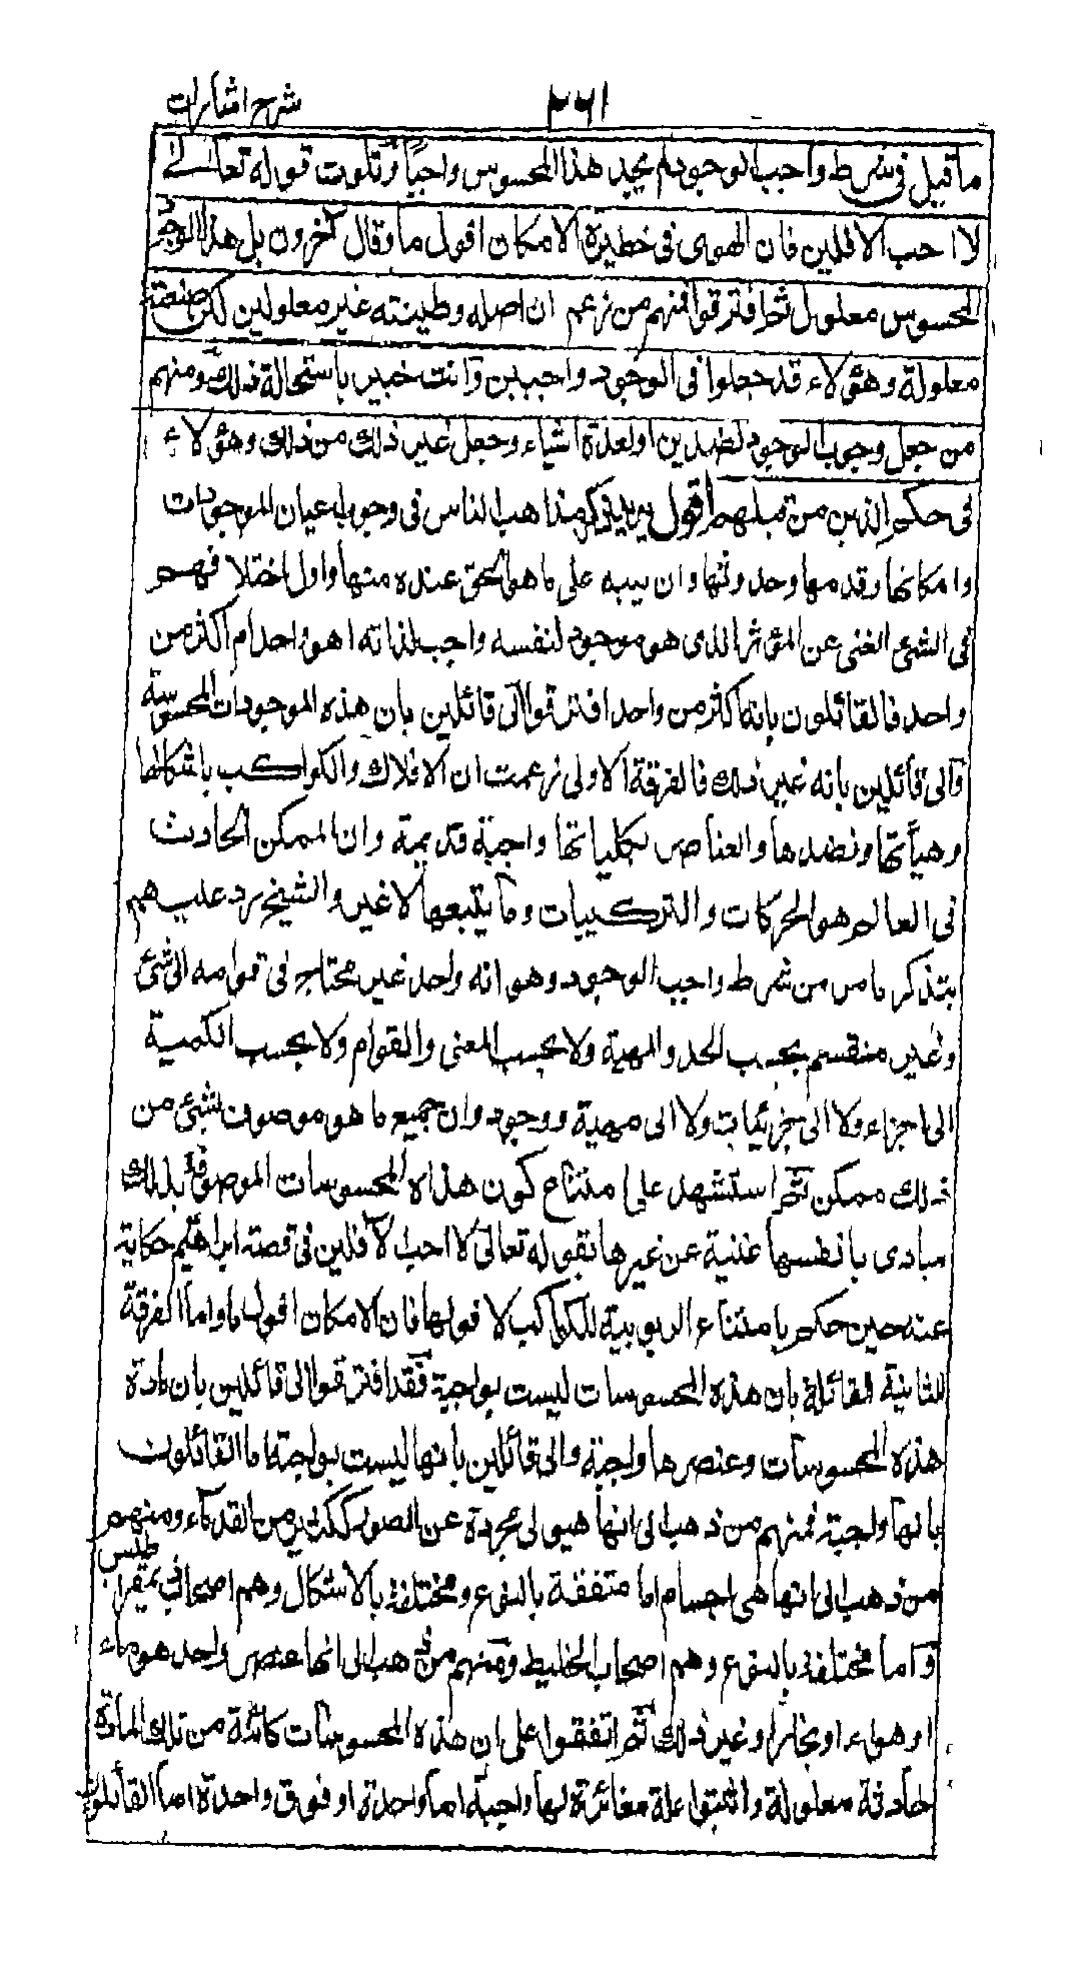 ٢٦١
شرح اشارات
ما قيل فى شرط واجب الوجود لم يجد هذا المحسوس واجبًا وتلوت قوله تعالى
لا احب الافلين فان الهوى فى خطيرة الامكان افول ما وقال آخرون بل هذا الموجود
المحسوس معلول ثم افترقوا فمنهم من زعم ان اصله وطينته غير معلولين لكن صنعته
معلولة وهؤلاء قد جعلوا فى الوجود واجبين وانت خبير باستحالة ذلك ومنهم
من جعل وجوب الوجود لضدين او لعدة اشياء وجعل غير ذلك من ذلك وهؤلاء
فى حكم الذين من قبلهم اقول يريد ذكر مذاهب الناس فى وجوب اعيان الموجودات
وامكانها وقدمها وحدوثها وان ينبه على ما هو الحق عنده منها واول اختلافهم
فى الشئ الغنى عن المؤثر الذى هو موجود لنفسه واجب لذاته اهو واحد ام اكثر من
واحد فالقائلون بانه اكثر من واحد افترقوا الى قائلين بان هذه الموجودات المحسوسة
والى قائلين بانه غير ذلك فالفرقة الاولى زعمت ان الافلاك والكواكب باشكالها
وهيآتها ونضدها والعناصر بكلياتها واجبة قديمة وان الممكن الحادث
فى العالم هو الحركات والتركيبات وما يتبعها لا غير والشيخ رد عليهم
بتذكر ما مر من شرط واجب الوجود وهو انه واحد غير محتاج فى قوامه الى شئ
وغير منقسم بحسب الحد والمهية ولا بحسب المعنى والقوام ولا بحسب الكمية
الى اجزاء ولا الى جزئيات ولا الى مهية ووجود وان جميع ما هو موصوف بشئ من
ذلك ممكن ثم استشهد على امتناع كون هذه المحسوسات الموصوفة بذلك
مبادى بانفسها غنية عن غيرها بقوله تعالى لا احب الآفلين فى قصة ابراهيم حكاية
عنه حين حكم بامتناع الربوبية للكواكب لافولها فان الامكان افول ما واما الفرقة
الثانية القائلة بان هذه المحسوسات ليست بواجبة فقد افترقوا الى قائلين بان مادة
هذه المحسوسات وعنصرها واجبة والى قائلين بانها ليست بواجبة اما القائلون
بانها واجبة فمنهم من ذهب الى انها هيولى مجردة عن الصور ككثير من القدماء ومنهم
من ذهب الى انها هى اجسام اما متفقة بالنوع ومختلفة بالاشكال وهم اصحاب ذيمقراطيس
واما مختلفة بالنوع وهم اصحاب الخليط ومنهم من ذهب الى انها عنصر واحد هو ماء
او هواء او بخار او غير ذلك ثم اتفقوا على ان هذه المحسوسات كائنة من تلك المادة
حادثة معلولة واثبتوا علة مغائرة لها واجبة اما واحدة او فوق واحدة اما القائلون